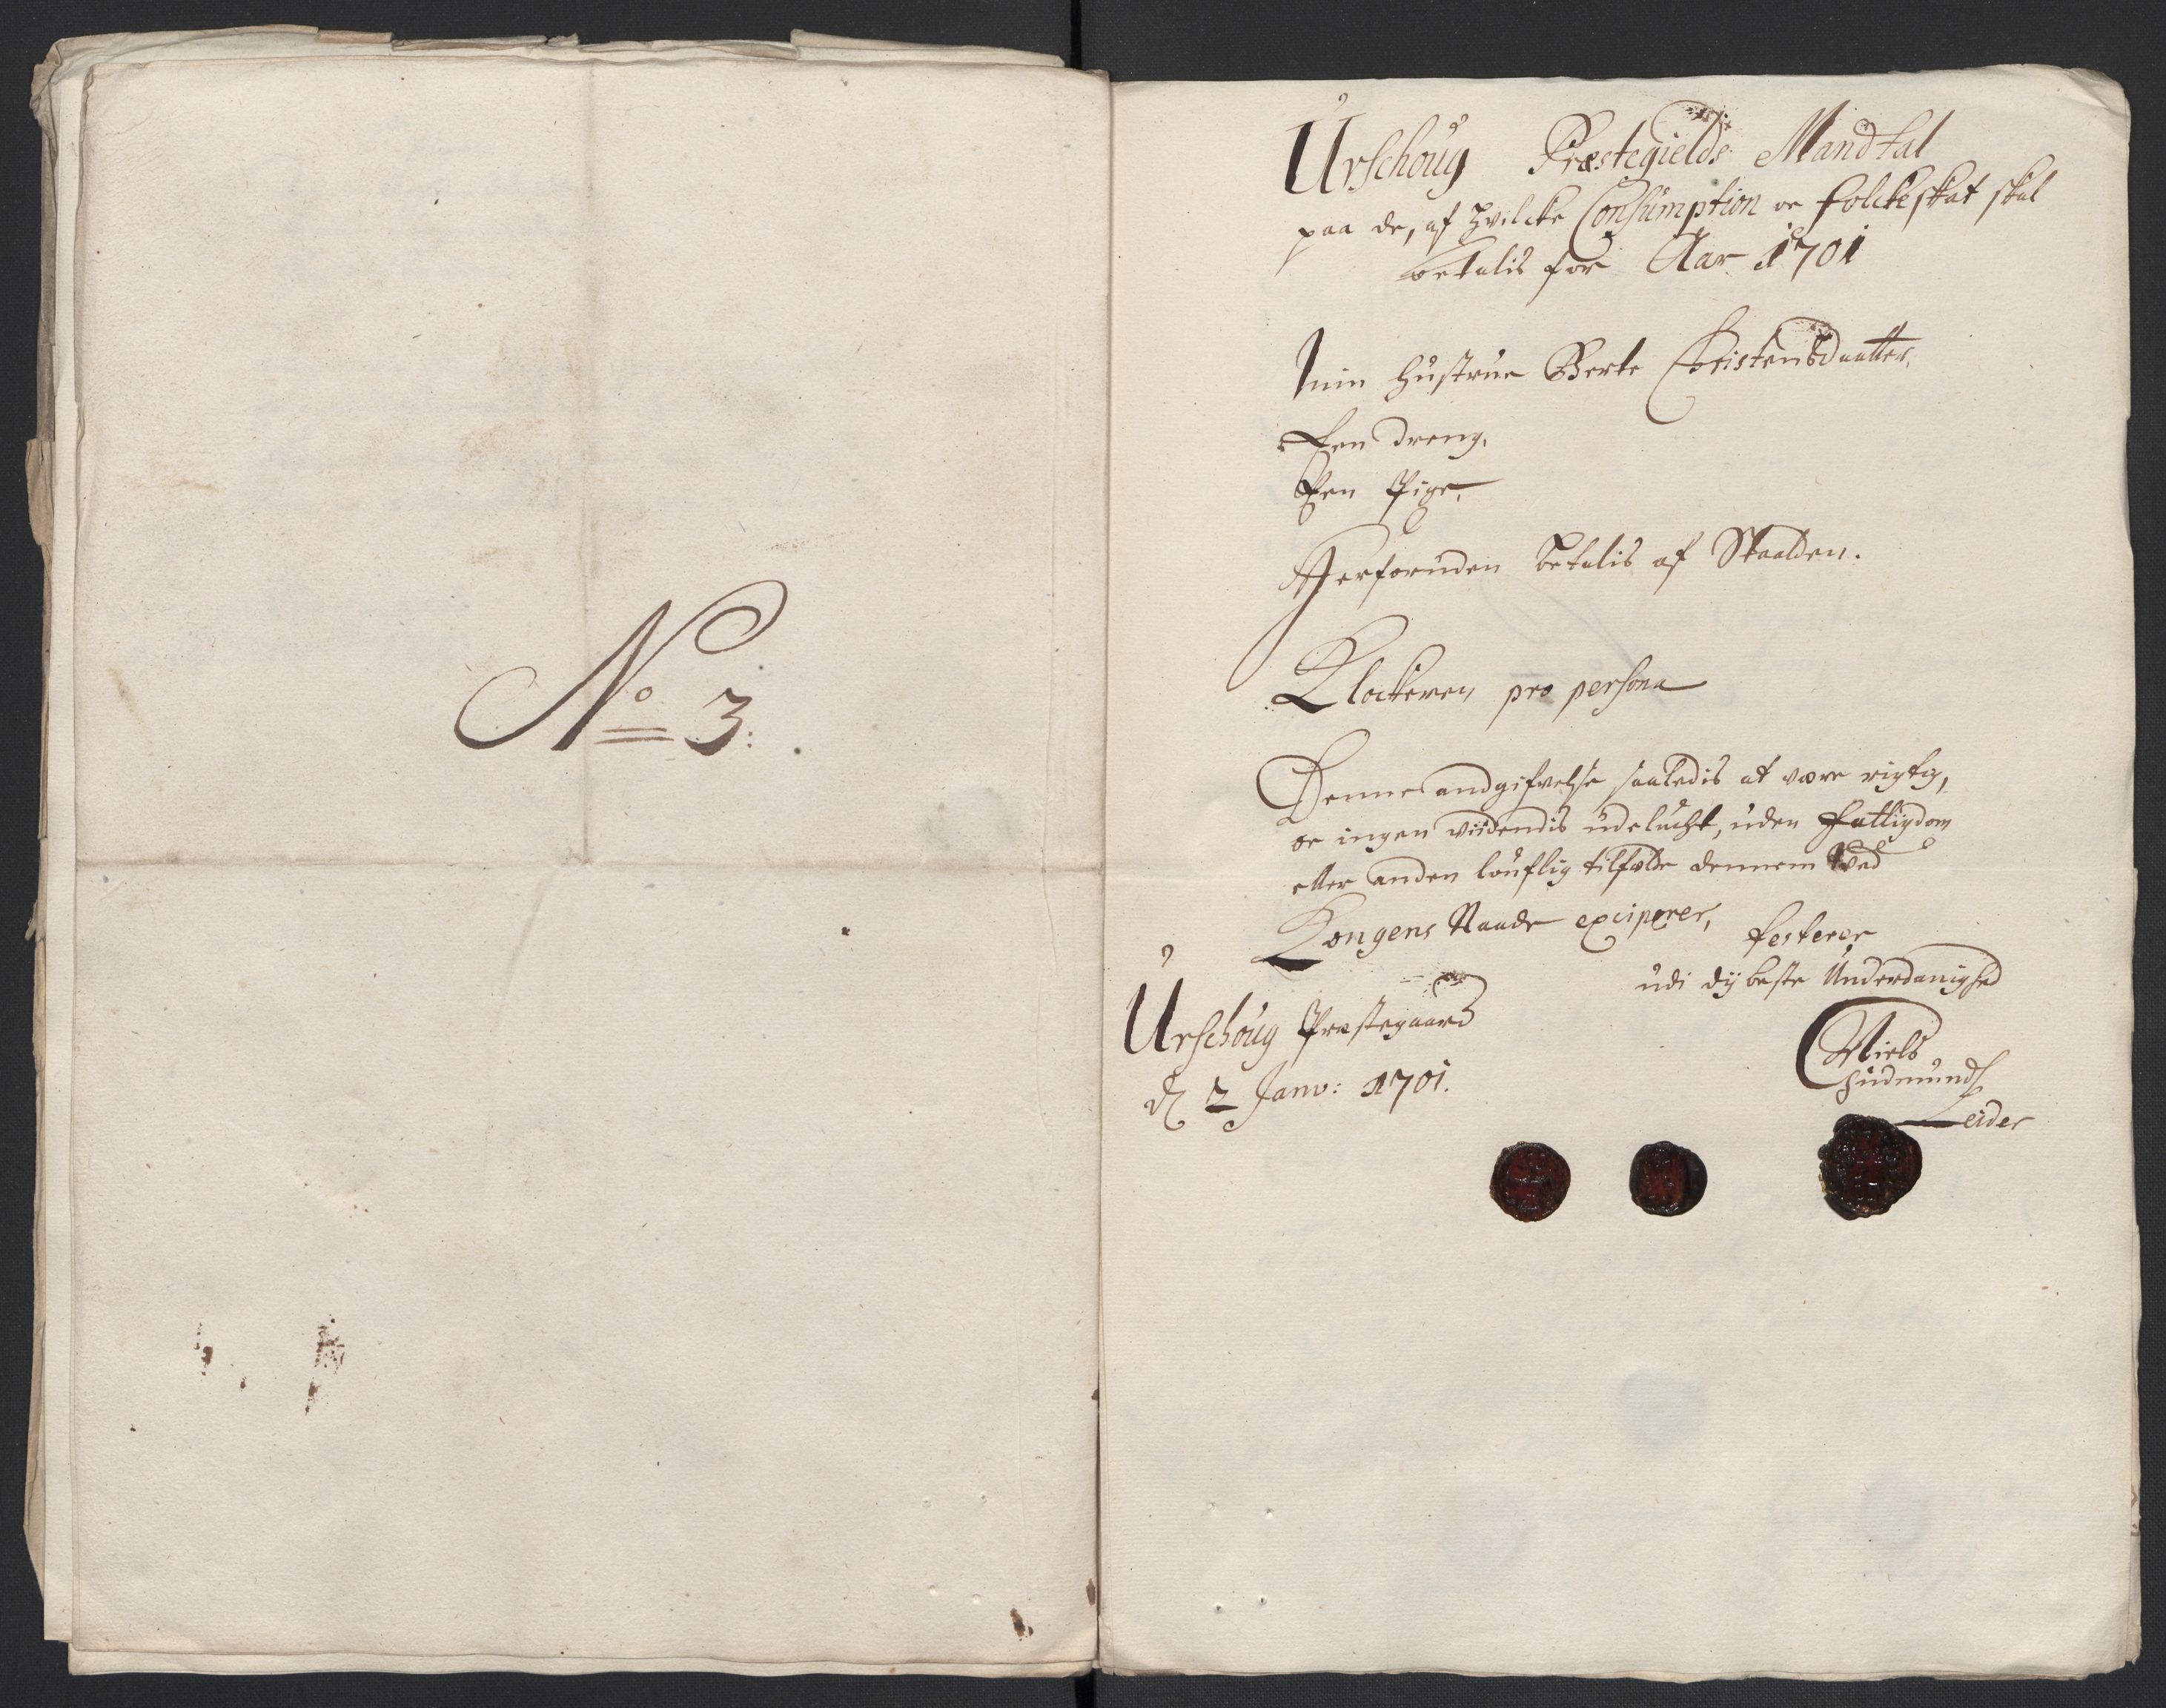 No 3.
Urschoug Præstegields Mandtal
paa de, af hvilcke Consumption oc folckeskat skal
betalis for Aar 1701
min hustrue Berte Christensdaatter,
Een dreng,
Een Pige,
Herforuden betalis af Skaalden.
Klockeren pro persona
Denne andgifvelse saaledis at være rigtig,
oc ingen viidendis udelucht, uden fattigdom
eller anden louflig tilfælde dennem ved
Kongens Naade exciperer,
testerer
udi dÿbeste Underdanighed
Urschoug Præstegaard
d 2 Janv: 1701.
Niels
Gudmunds
Leider